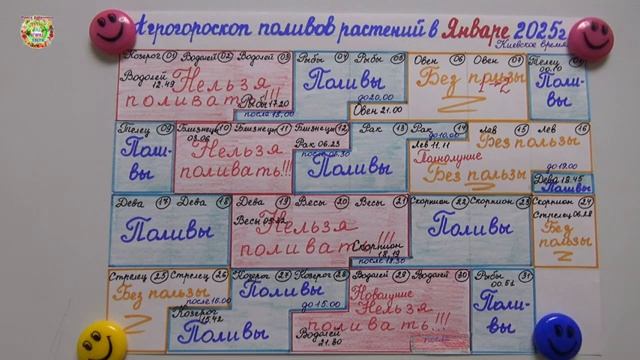 Агрогороскоп поливов растений в Январе 2025г
Киевское время
Козерог 01 Водолей 02 Водолей 03 Рыбы 04 Рыбы 05 Овен 06 Овен 07 Телец 08
Водолей 12.49
Нельзя поливать!!!
Рыбы 17.20
после 18.00
Поливы
до 20.00
Овен 21.00
Без пользы
Поливы
Телец 09 Близнецы 10 Близнецы 11 Близнецы 12 Рак 13 Рак 14 Лев 15 Лев 16
Поливы
03.06
Нельзя поливать!!!
Рак 06.23
Поливы
до 10.00
Лев 11.11
Полнолуние
Без пользы
Без пользы
до 19.00
Дева 18.45
Поливы
Дева 17 Дева 18 Дева 19 Весы 20 Весы 21 Скорпион 22 Скорпион 23 Скорпион 24
Поливы
Весы
Нельзя поливать!!!
Скорпион 18.19
после 18.30
Поливы
Стрелец 06.28
Без пользы
Стрелец 25 Стрелец 26 Козерог 27 Козерог 28 Водолей 29 Водолей 30 Рыбы 31
Без пользы
после 16.00
Козерог 15.42
Поливы
Поливы
до 15.00
Водолей
Новолуние
Нельзя поливать!!!
00.52
Поливы